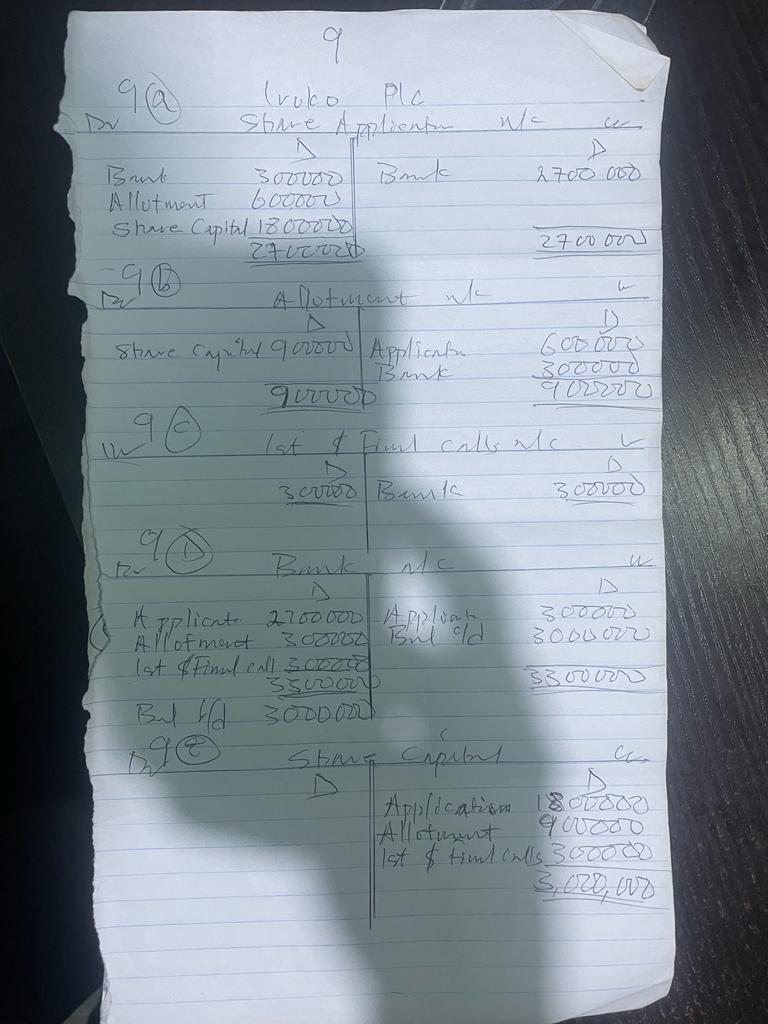 9
9(a) Iroko Plc
Dr Share Application a/c Cr
D D
Bank 300000 Bank 2700 000
Allotment 600000
Share Capital 1800000
2700000 2700 000
9(b)
Dr Allotment a/c Cr
D D
Share Capital 900000 Application 600000
Bank 300000
900000 900000
9(c)
Dr 1st & Final calls a/c Cr
D D
300000 Bank 300000
9(D)
Dr Bank a/c Cr
D D
Application 2700000 Application 300000
Allotment 300000 Bal c/d 3000000
1st & Final call 300000
3300000 3300000
Bal b/d 3000000
9(e)
Dr Share Capital Cr
D D
Application 1800000
Allotment 900000
1st & Final Calls 300000
3,000,000